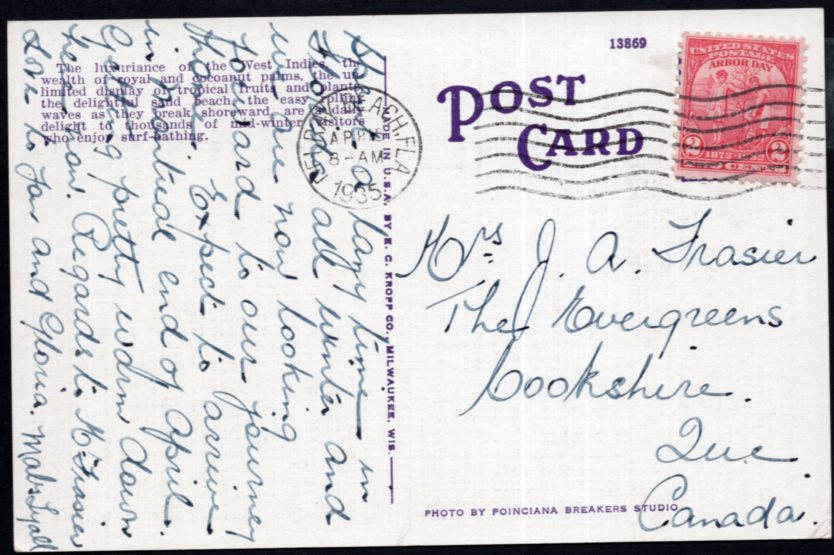 The luxuriance of the West Indies, the
wealth of royal and cocoanut palms, the un-
limited display of tropical fruits and plants,
the delightful sand beach the easy
waves as they break shoreward are a daily
delight to thousands of mid-winter visitors
who enjoy surf-bathing.
Have a lazy time in
Florida all winter and
we are now looking
forward to our journey
home. Expect to arrive
in Montreal end of April.
Getting pretty warm down
here now. Regards to Mr Frasier
Love to you and Gloria. Mabs Lyall
MADE IN U.S.A. BY E. C. KROPP CO., MILWAUKEE, WIS.
BEACH, FLA.
APR
8-AM
1935
13869
POST
CARD
UNITED STATES
POSTAGE
ARBOR DAY
2 1872-1932 2
CENTS
Mrs J. A. Frasier
The Evergreens
Cookshire.
Que
Canada.
PHOTO BY POINCIANA BREAKERS STUDIO